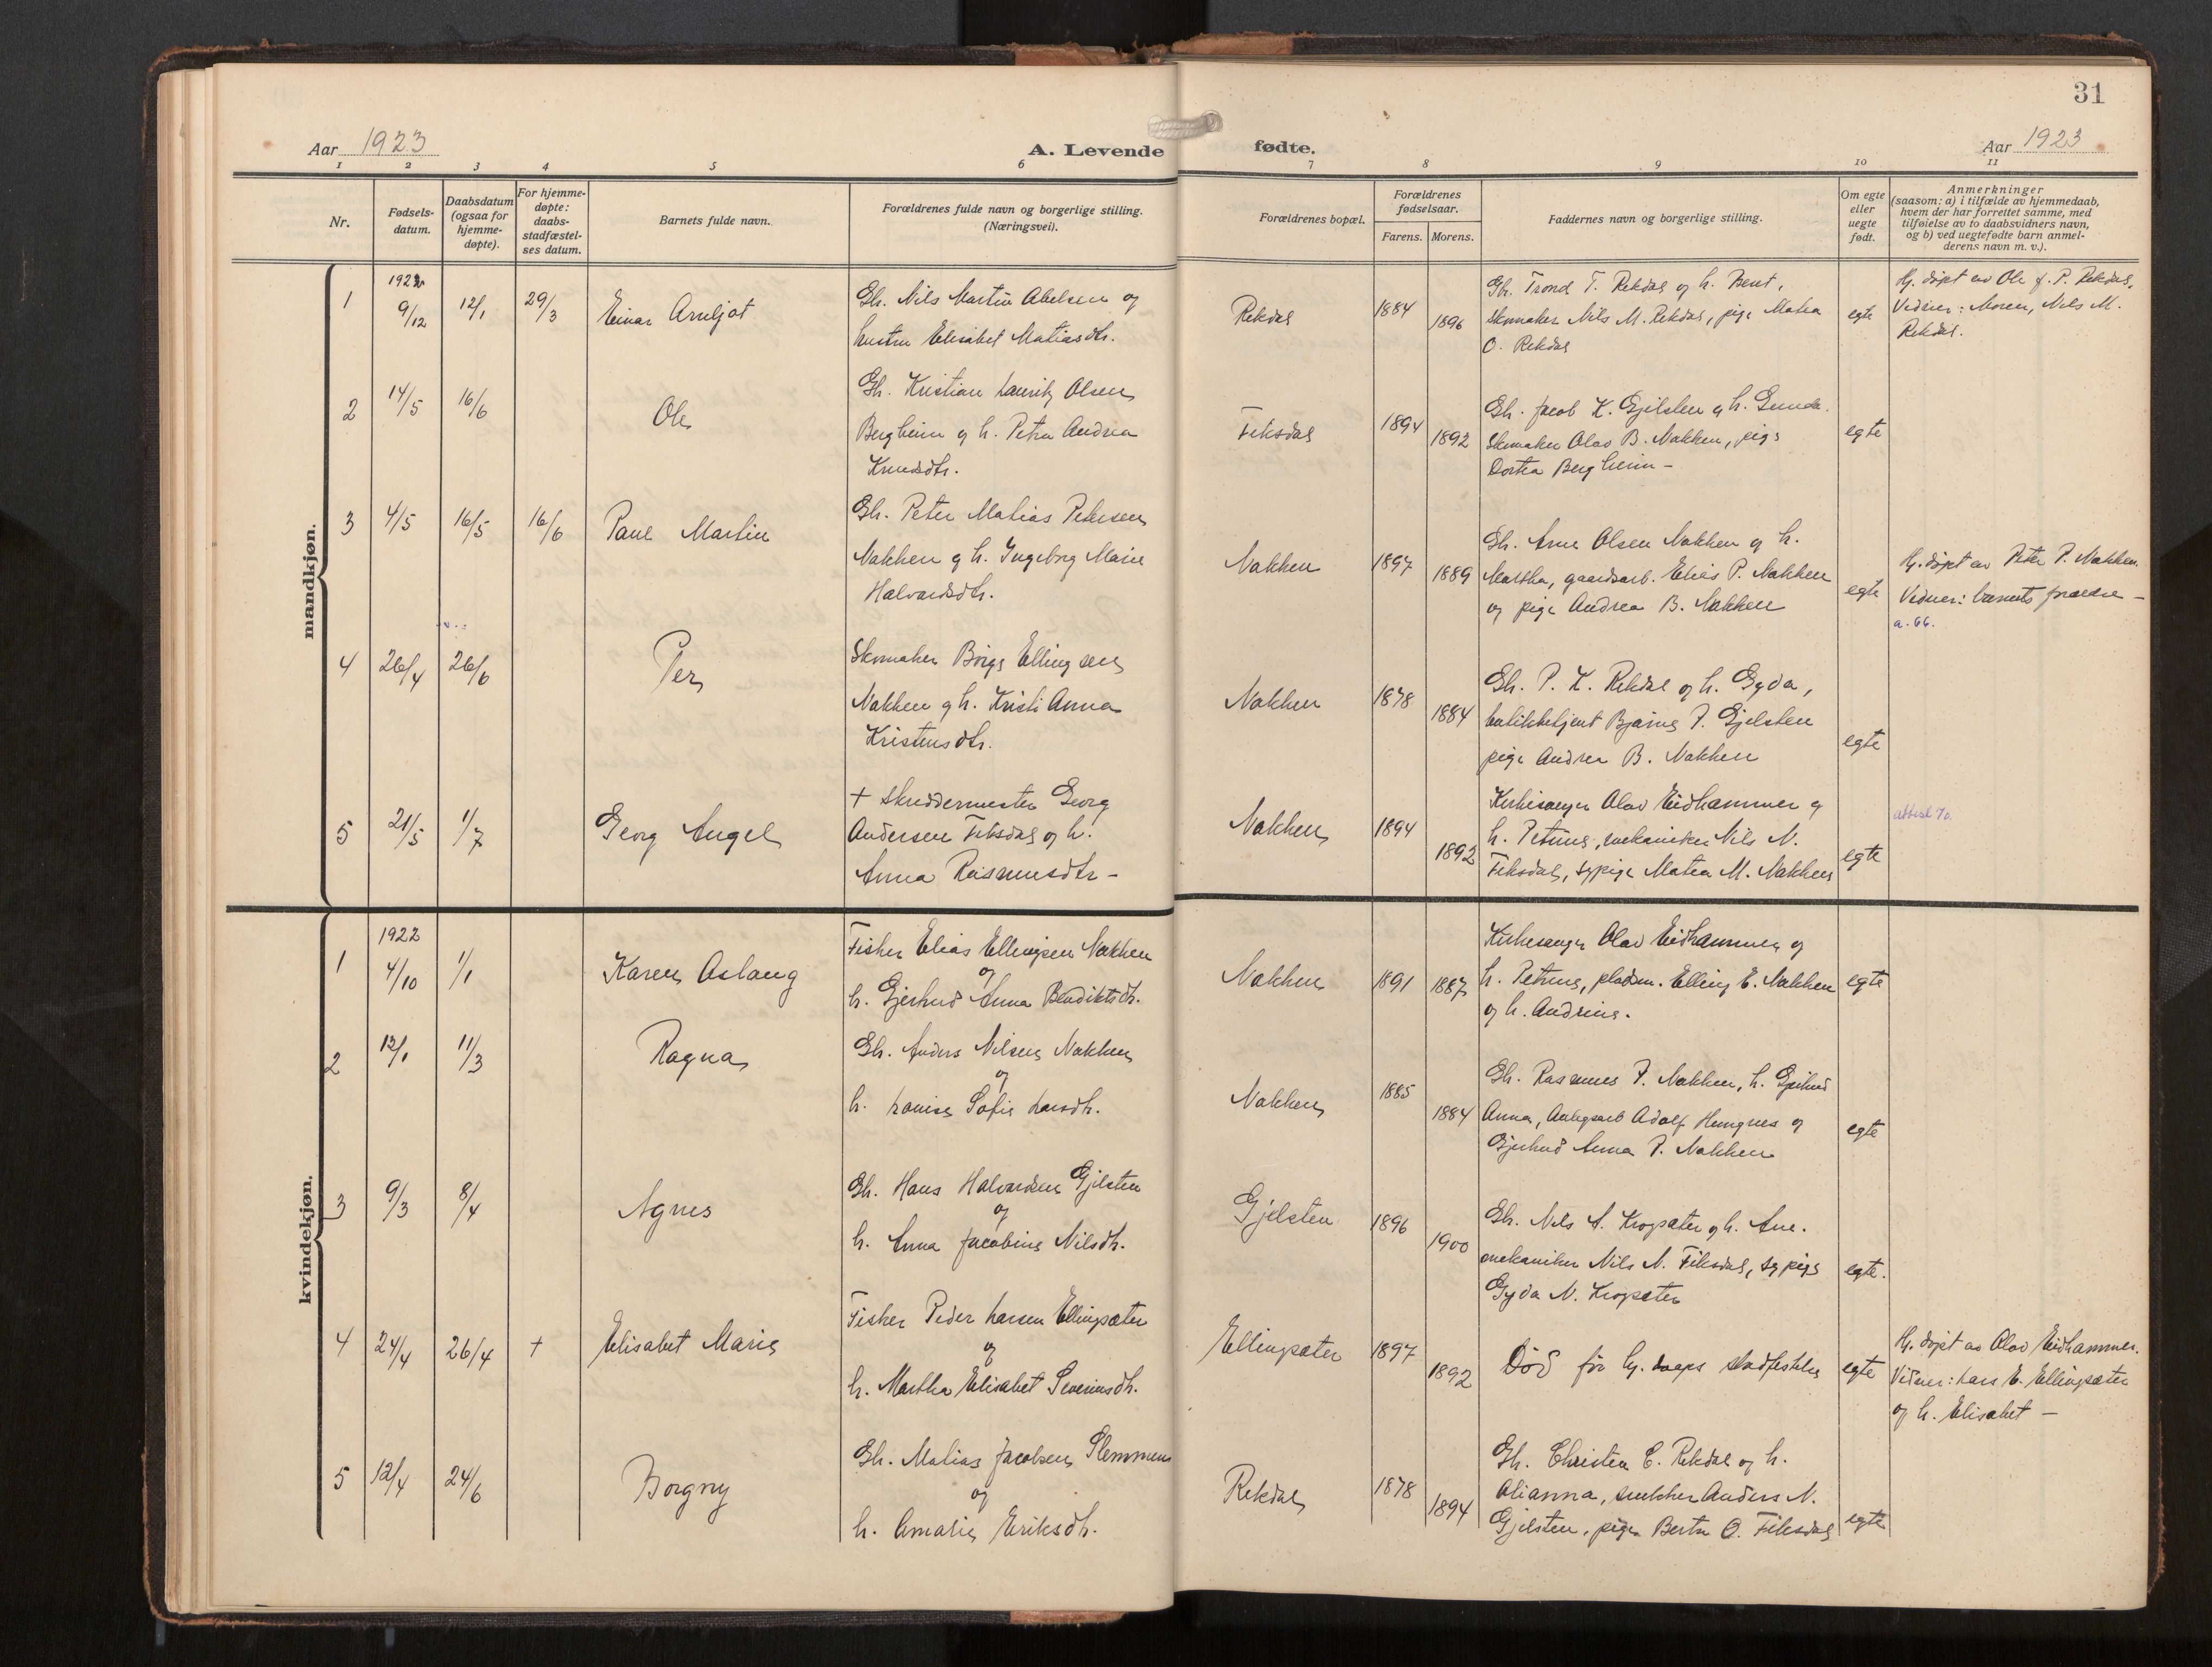 31
Aar 1923
A. Levende fødte.
Aar 1923
1 2 3 4 5 6 7 8 9 10 11
Nr.
Fødsels-
datum.
Daabsdatum
(ogsaa for
hjemme-
døpte).
For hjemme-
døpte:
daabs-
stadfæstel-
ses datum.
Barnets fulde navn.
Forældrenes fulde navn og borgerlige stilling.
(Næringsvei).
Forældrenes bopæl.
Forældrenes
fødselsaar.
Farens. Morens.
Faddernes navn og borgerlige stilling.
Om egte
eller
uegte
født.
Anmerkninger
(saasom: a) i tilfælde av hjemmedaab,
hvem der har forrettet samme, med
tilføielse av to daabsvidners navn,
og b) ved uegtefødte barn anmel-
derens navn m. v.).
mandkjøn.
1 1922 9/12 12/1 29/3 Einar Arnljot
Gb. Nils Martin Abelsen og
hustru Elisabet Matiasdtr.
Rekdal 1884 1896
Gb. Trond T. Rekdal og h. Bent,
skomaker Nils M. Rekdal, pige Matea
O. Rekdal
egte
Hj. døpt av Ole J. P. Rekdal.
Vidner: Moren, Nils M.
Rekdal.
2 14/5 16/6 Ole
Gb. Kristian Lauritz Olsen
Bergheim og h. Petra Andrea
Knudsdtr.
Fiksdal 1894 1892
Gb. Jacob K. Gjelsten og h. Gunda.
Skomaker Olav B. Nakken, pige
Dortea Bergheim -
egte
3 4/5 16/5 16/6 Paul Martin
Gb. Peter Matias Petersen
Nakken og h. Ingeborg Marie
Halvardsdtr.
Nakken 1897 1889
Gb. Arne Olsen Nakken og h.
Martha, gaardsarb. Elias P. Nakken
og pige Andrea B. Nakken
egte
Hj. døpt av Peter P. Nakken.
Vidner: barnets forældre -
a. 66.
4 26/4 26/6 Per
Skomaker Børge Ellingsen
Nakken og h. Kristi Anna
Kristensdtr.
Nakken 1878 1884
Gb. P. K. Rekdal og h. Gyda,
butikbetjent Bjarne P. Gjelsten
pige Andrea B. Nakken
egte
5 21/5 1/7 Georg Angel
+ Skreddermester Georg
Andersen Fiksdal og h.
Anna Rasmusdtr -
Nakken 1894 1892
Kirkesanger Olav Eidhammer og
h. Petrine, mekaniker Nils N.
Fiksdal, sypige Matea M. Nakken
egte
kvindekjøn.
1 1922 4/10 1/1 Karen Aslaug
Fisker Elias Ellingsen Nakken
og
h. Gjertrud Anna Bendiktsdtr.
Nakken 1891 1887
Kirkesanger Olav Eidhammer og
h. Petrine, pladsm. Elling E. Nakken
og h. Andrine.
egte
2 12/1 11/3 Ragna
Gb. Anders Nilsen Nakken
og
h. Louise Sofie Larsdtr.
Nakken 1885 1884
Gb. Rasmus P. Nakken, h. Gjertrud
Anna, Adolf Hungnes og
Gjertrud Anna P. Nakken
egte
3 9/3 8/4 Agnes
Gb. Hans Halvardsen Gjelsten
og
h. Anna Jacobine Nilsdtr.
Gjelsten 1896 1900
Gb. Nils A. Kropsæter og h. Ane.
mekaniker Nils N. Fiksdal, sypige
Gyda N. Kropsæter
egte.
4 24/4 26/4 + Elisabet Marie
Fisker Peder Larsen Ellingsæter
og
h. Martha Elisabet Severinsdtr.
Ellingsæter 1897 1892
Død før hj. daaps stadfestelse
egte
Hj. døpt av Olav Eidhammer.
Vidner: Lars E. Ellingsæter
og h. Elisabet -
5 12/4 24/6 Borgny
Gb. Matias Jacobsen Slemmen
og
h. Amalie Eriksdtr.
Rekdal 1878 1894
Gb. Christen C. Rekdal og h.
Olianna, snekker Anders N.
Gjelsten, pige Berta O. Fiksdal
egte